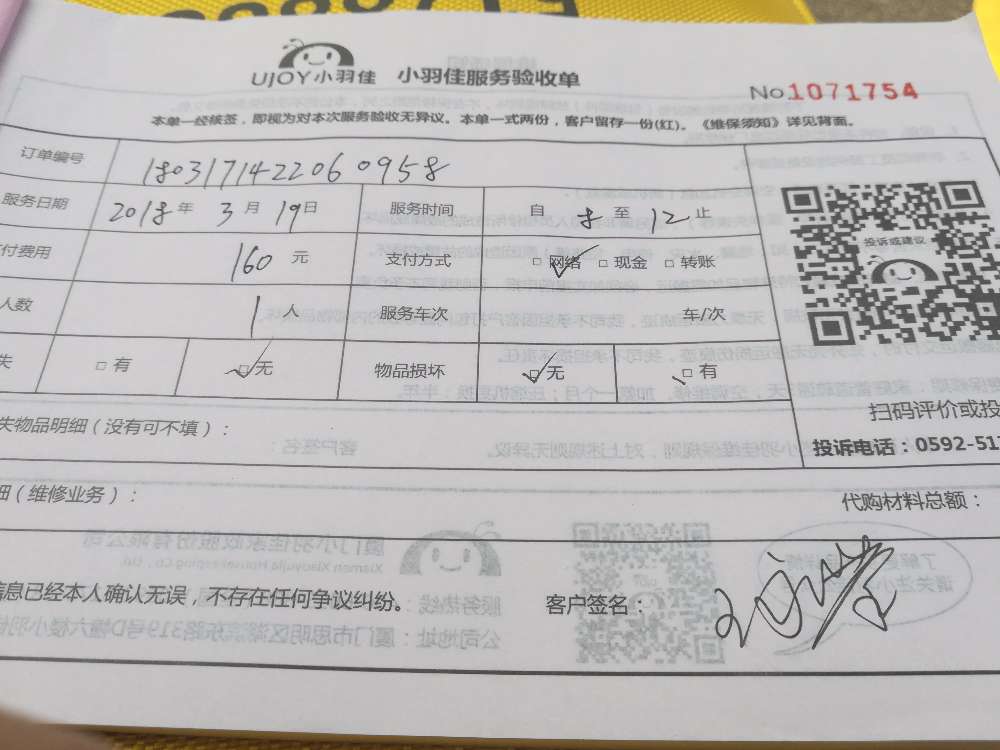 UJOY小羽佳 小羽佳服务验收单
No.1071754
本单一经核签，即视为对本次服务验收无异议。本单一式两份，客户留存一份(红)。《维保须知》详见背面。
订单编号 180317142206 0958
服务日期 2018年 3月 19日 服务时间 自 8 至 12 止
付费用 160 元 支付方式 □网络 □现金 □转账
人数 1 人 服务车次 车/次
失 □有 □无 物品损坏 □无 □有
投诉或建议
扫码评价或投
失物品明细（没有可不填）：
投诉电话：0592-51
细（维修业务）： 代购材料总额：
信息已经本人确认无误，不存在任何争议纠纷。 客户签名：